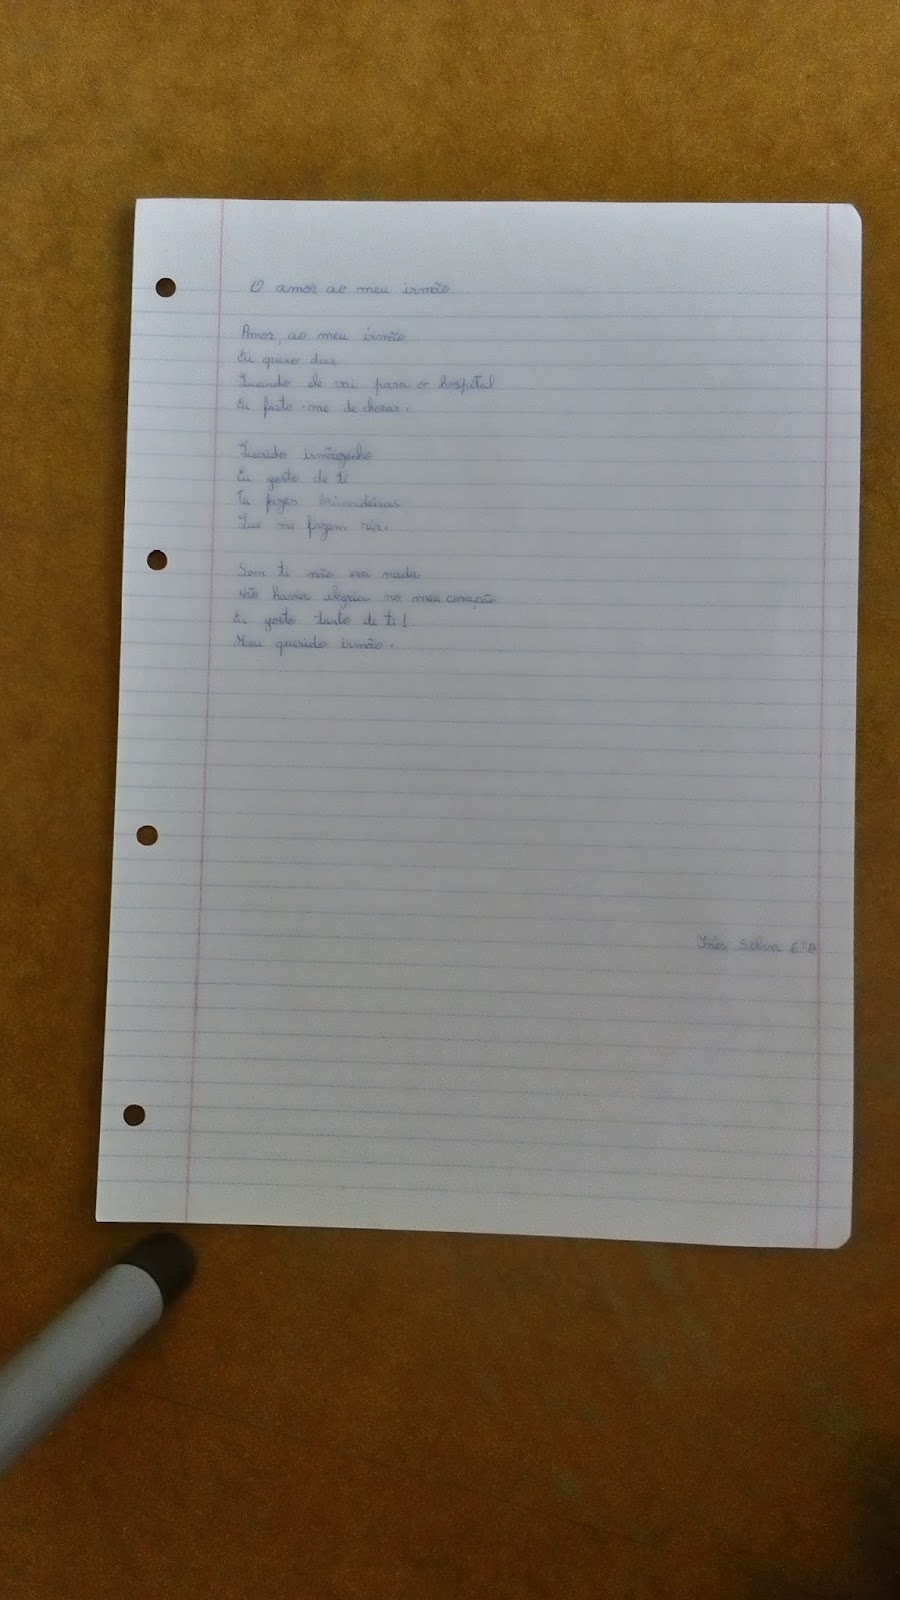 O amor ao meu irmão
Amor, ao meu irmão
Eu quero dar
Quando ele vai para o hospital
Eu farto-me de chorar.
Querido irmãozinho
Eu gosto de ti
Tu fazes brincadeiras
Que me fazem rir.
Sem ti não era nada
Não havia alegria no meu coração
Eu gosto tanto de ti!
Meu querido irmão.
Inês Silva 6ºB